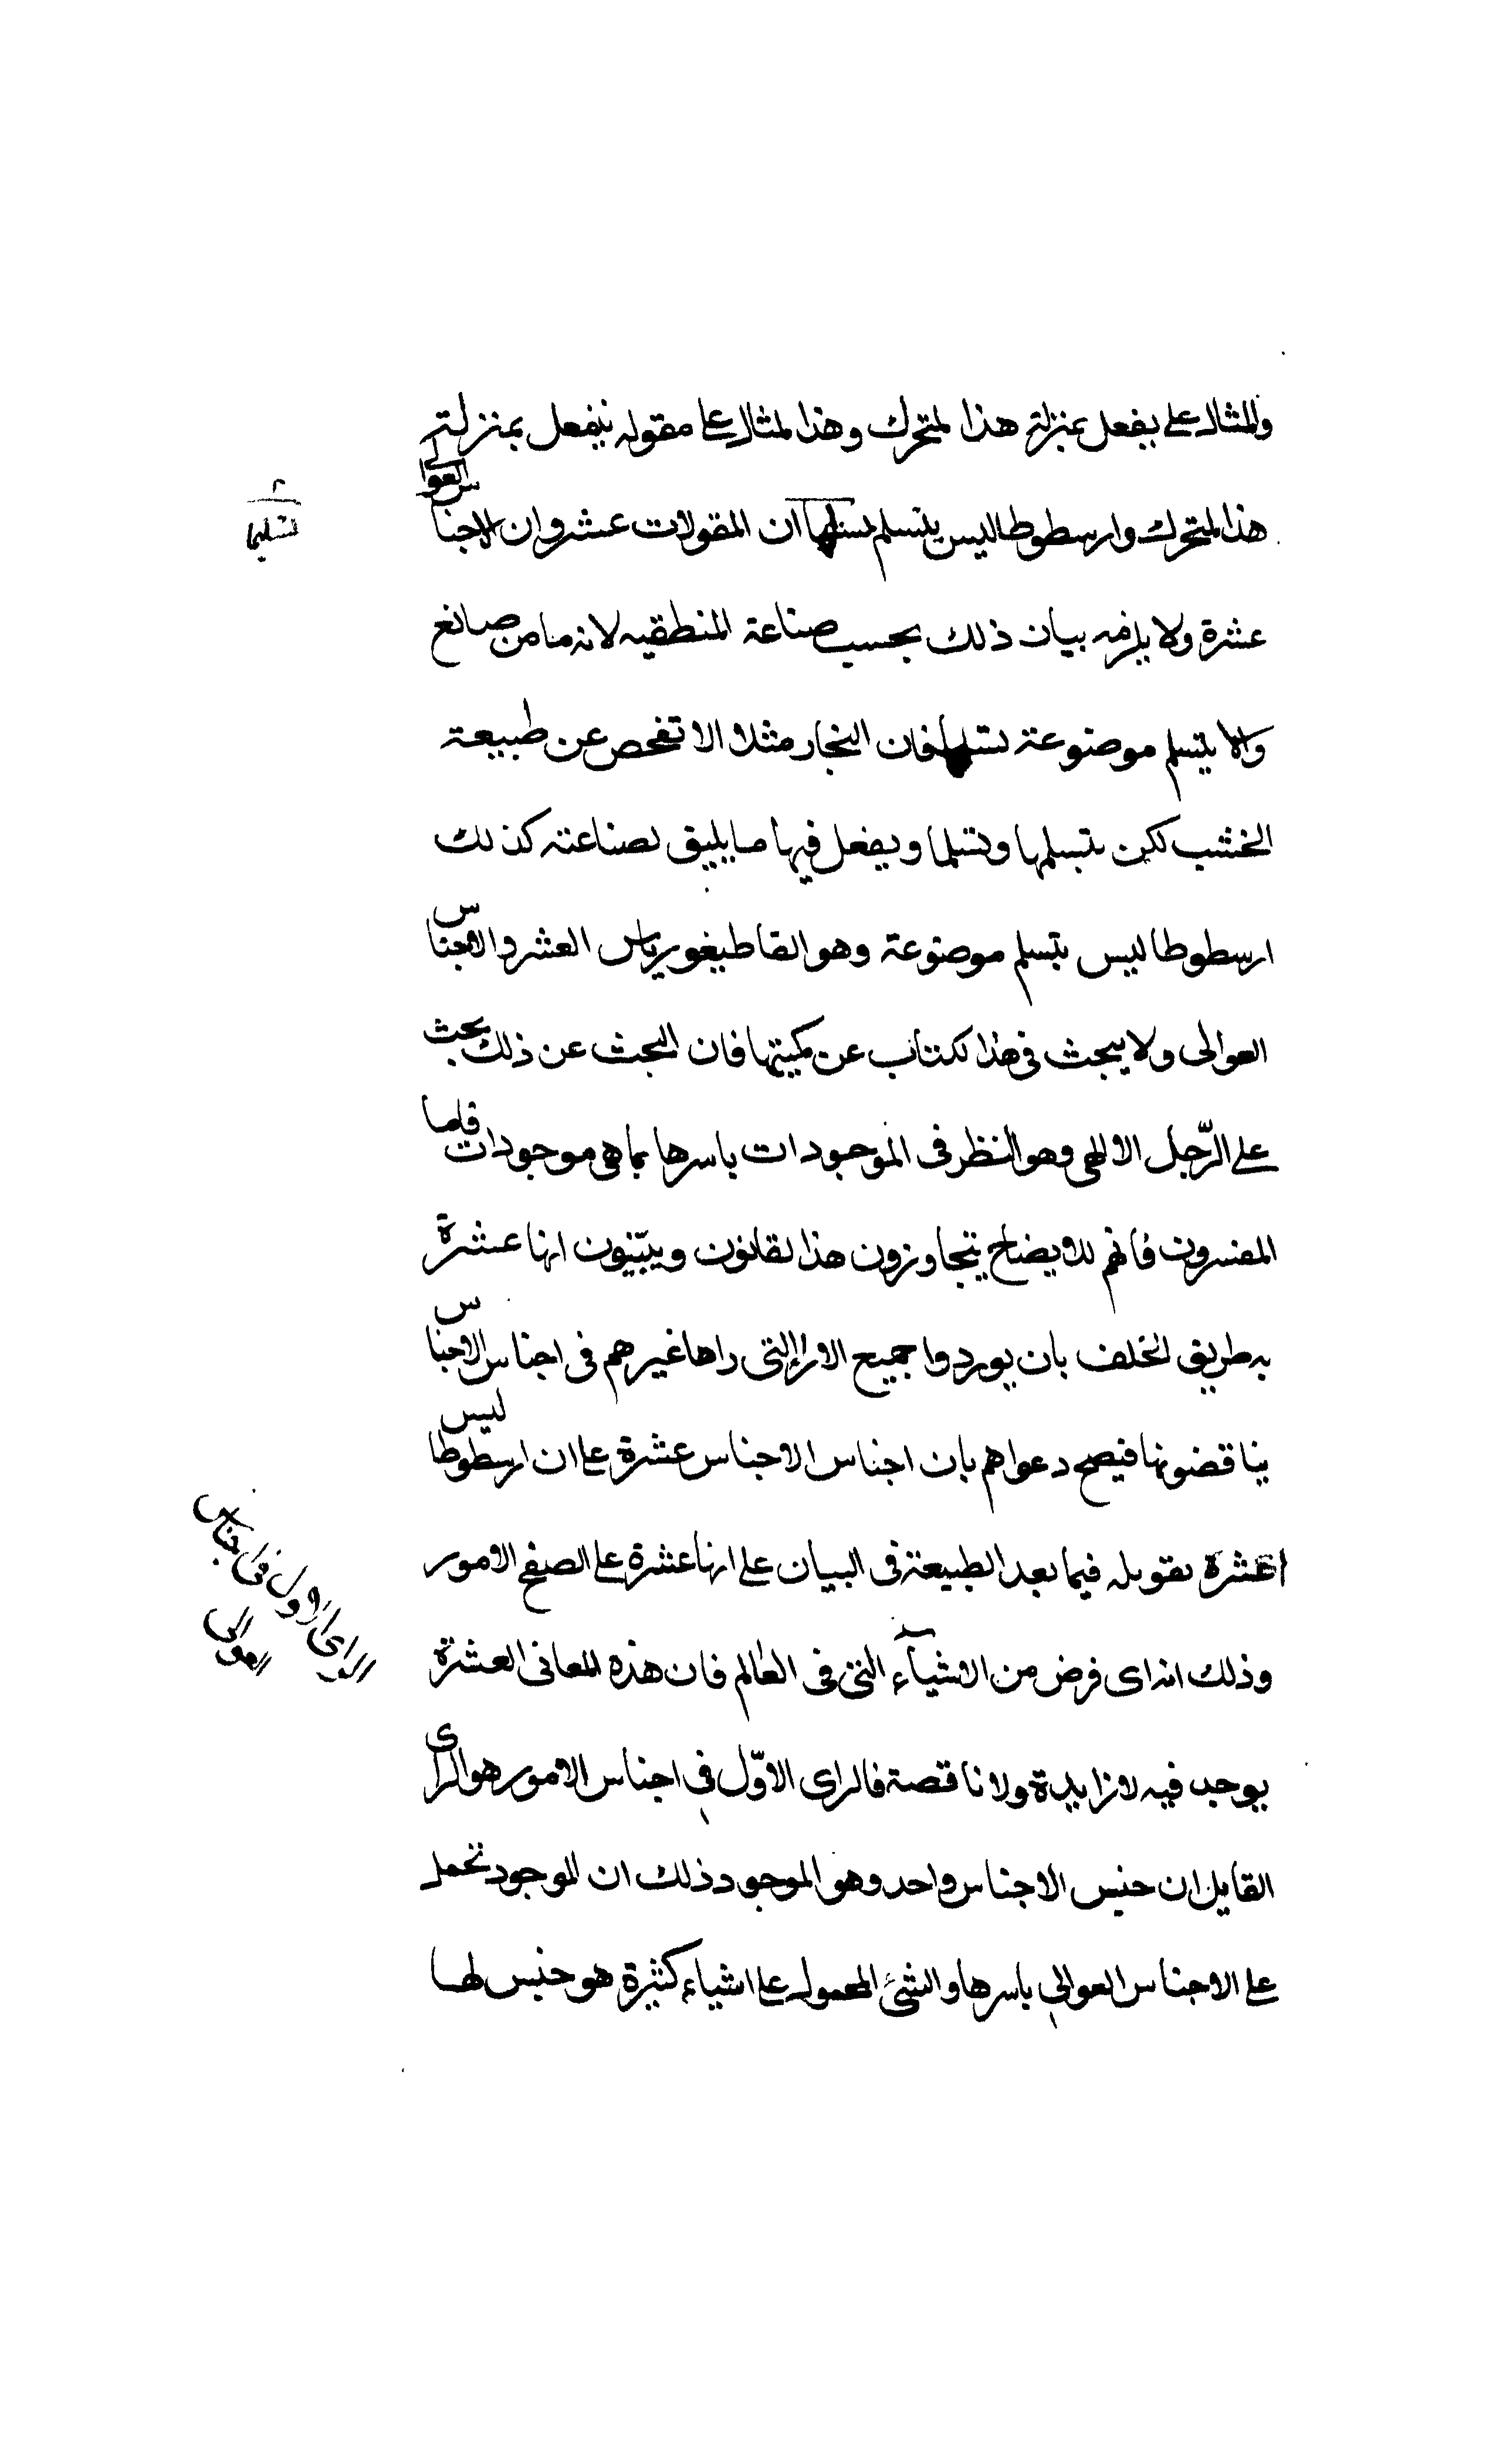 والمثال على يفعل بمنزلة هذا المتحرك وهذا المثال على مقوله ينفعل بمنزلة
هذا المتحرك وارسطوطاليس يتسلم تسلما ان المقولات عشر وان الاجناس العوالى
تسليما
عشرة ولا يلزمه بيان ذلك بحسب صناعة المنطقيه لانه ما من صانع
والا يتسلم موضوعة تسلما فان النجار مثلا لا تفحص عن طبيعة
الخشب لكن يتسلمها وتسلما ويفعل فيها ما يليق لصناعته كذلك
ارسطوطاليس يتسلم موضوعة وهو القاطيغورياس العشر والاجناس
العوالى ولا يبحث فى هذا لكتاب عن كميتها فان البحث عن ذلك بحث
على الرّجل الالهى وهو النظر فى الموجودات باسرها بما هى موجودات فاما
المفسرون فانهم للايضاح يتجاوزون هذا لقانون ويبّينون انها عشرة
به طريق الخلف بان يوردوا جميع الاراء التى راها غيرهم فى اجناس الاجناس
يناقضونها فيصح دعواهم بان اجناس الاجناس عشرة على ان ارسطوطاليس
عشرة بقوله فيما بعد الطبيعة فى البيان على انها عشرة على الصفح الامور
وذلك انه اى فرض من الاشيآء التى فى العالم فان هذه المعانى العشرة
الراى الاول فى اجناس
العوالى
يوجد فيه لا زايدة ولا ناقصة فالراى الاوّل فى اجناس الامور هو الراى
القايل ان جنس الاجناس واحد وهو الموجود ذلك ان الموجود تحمل
على الاجناس العوالى باسرها والشئ المحموله على اشياء كثيرة هو جنس لها